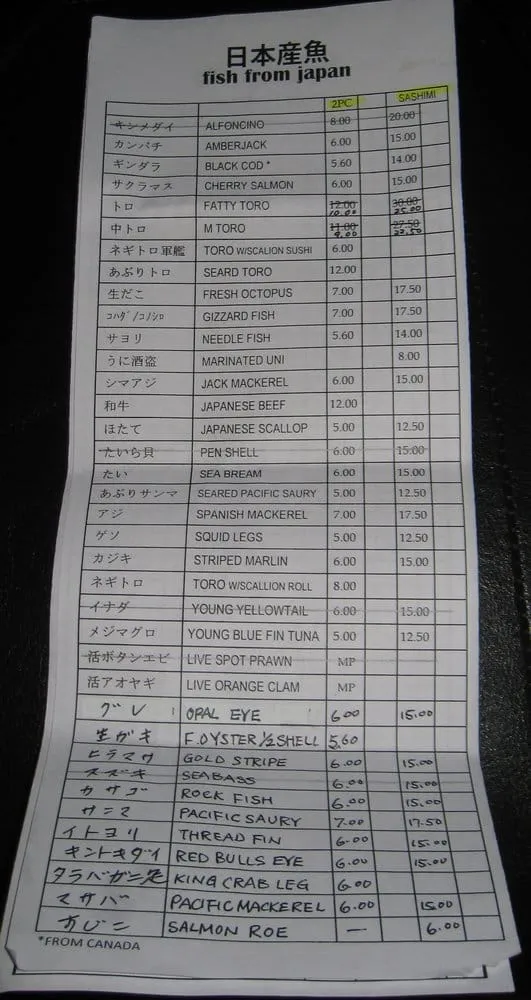 日本産魚
fish from japan
2PC SASHIMI
キンメダイ ALFONCINO 8.00 20.00
カンパチ AMBERJACK 6.00 15.00
ギンダラ BLACK COD * 5.60 14.00
サクラマス CHERRY SALMON 6.00 15.00
トロ FATTY TORO 12.00 10.00 30.00 25.00
中トロ M TORO 11.00 9.00 27.50 22.50
ネギトロ軍艦 TORO W/SCALION SUSHI 6.00
あぶりトロ SEARD TORO 12.00
生だこ FRESH OCTOPUS 7.00 17.50
コハダ/コノシロ GIZZARD FISH 7.00 17.50
サヨリ NEEDLE FISH 5.60 14.00
うに酒盗 MARINATED UNI 8.00
シマアジ JACK MACKEREL 6.00 15.00
和牛 JAPANESE BEEF 12.00
ほたて JAPANESE SCALLOP 5.00 12.50
たいら貝 PEN SHELL 6.00 15.00
たい SEA BREAM 6.00 15.00
あぶりサンマ SEARED PACIFIC SAURY 5.00 12.50
アジ SPANISH MACKEREL 7.00 17.50
ゲソ SQUID LEGS 5.00 12.50
カジキ STRIPED MARLIN 6.00 15.00
ネギトロ TORO W/SCALLION ROLL 8.00
イナダ YOUNG YELLOWTAIL 6.00 15.00
メジマグロ YOUNG BLUE FIN TUNA 5.00 12.50
活ボタンエビ LIVE SPOT PRAWN MP
活アオヤギ LIVE ORANGE CLAM MP
グレ OPAL EYE 6.00 15.00
生ガキ F.OYSTER ½ SHELL 5.60
ヒラマサ GOLD STRIPE 6.00 15.00
スズキ SEABASS 6.00 15.00
カサゴ ROCK FISH 6.00 15.00
サンマ PACIFIC SAURY 7.00 17.50
イトヨリ THREAD FIN 6.00 15.00
キントキダイ RED BULLS EYE 6.00 15.00
タラバガニ足 KING CRAB LEG 6.00
マサバ PACIFIC MACKEREL 6.00 15.00
すじこ SALMON ROE — 6.00
*FROM CANADA